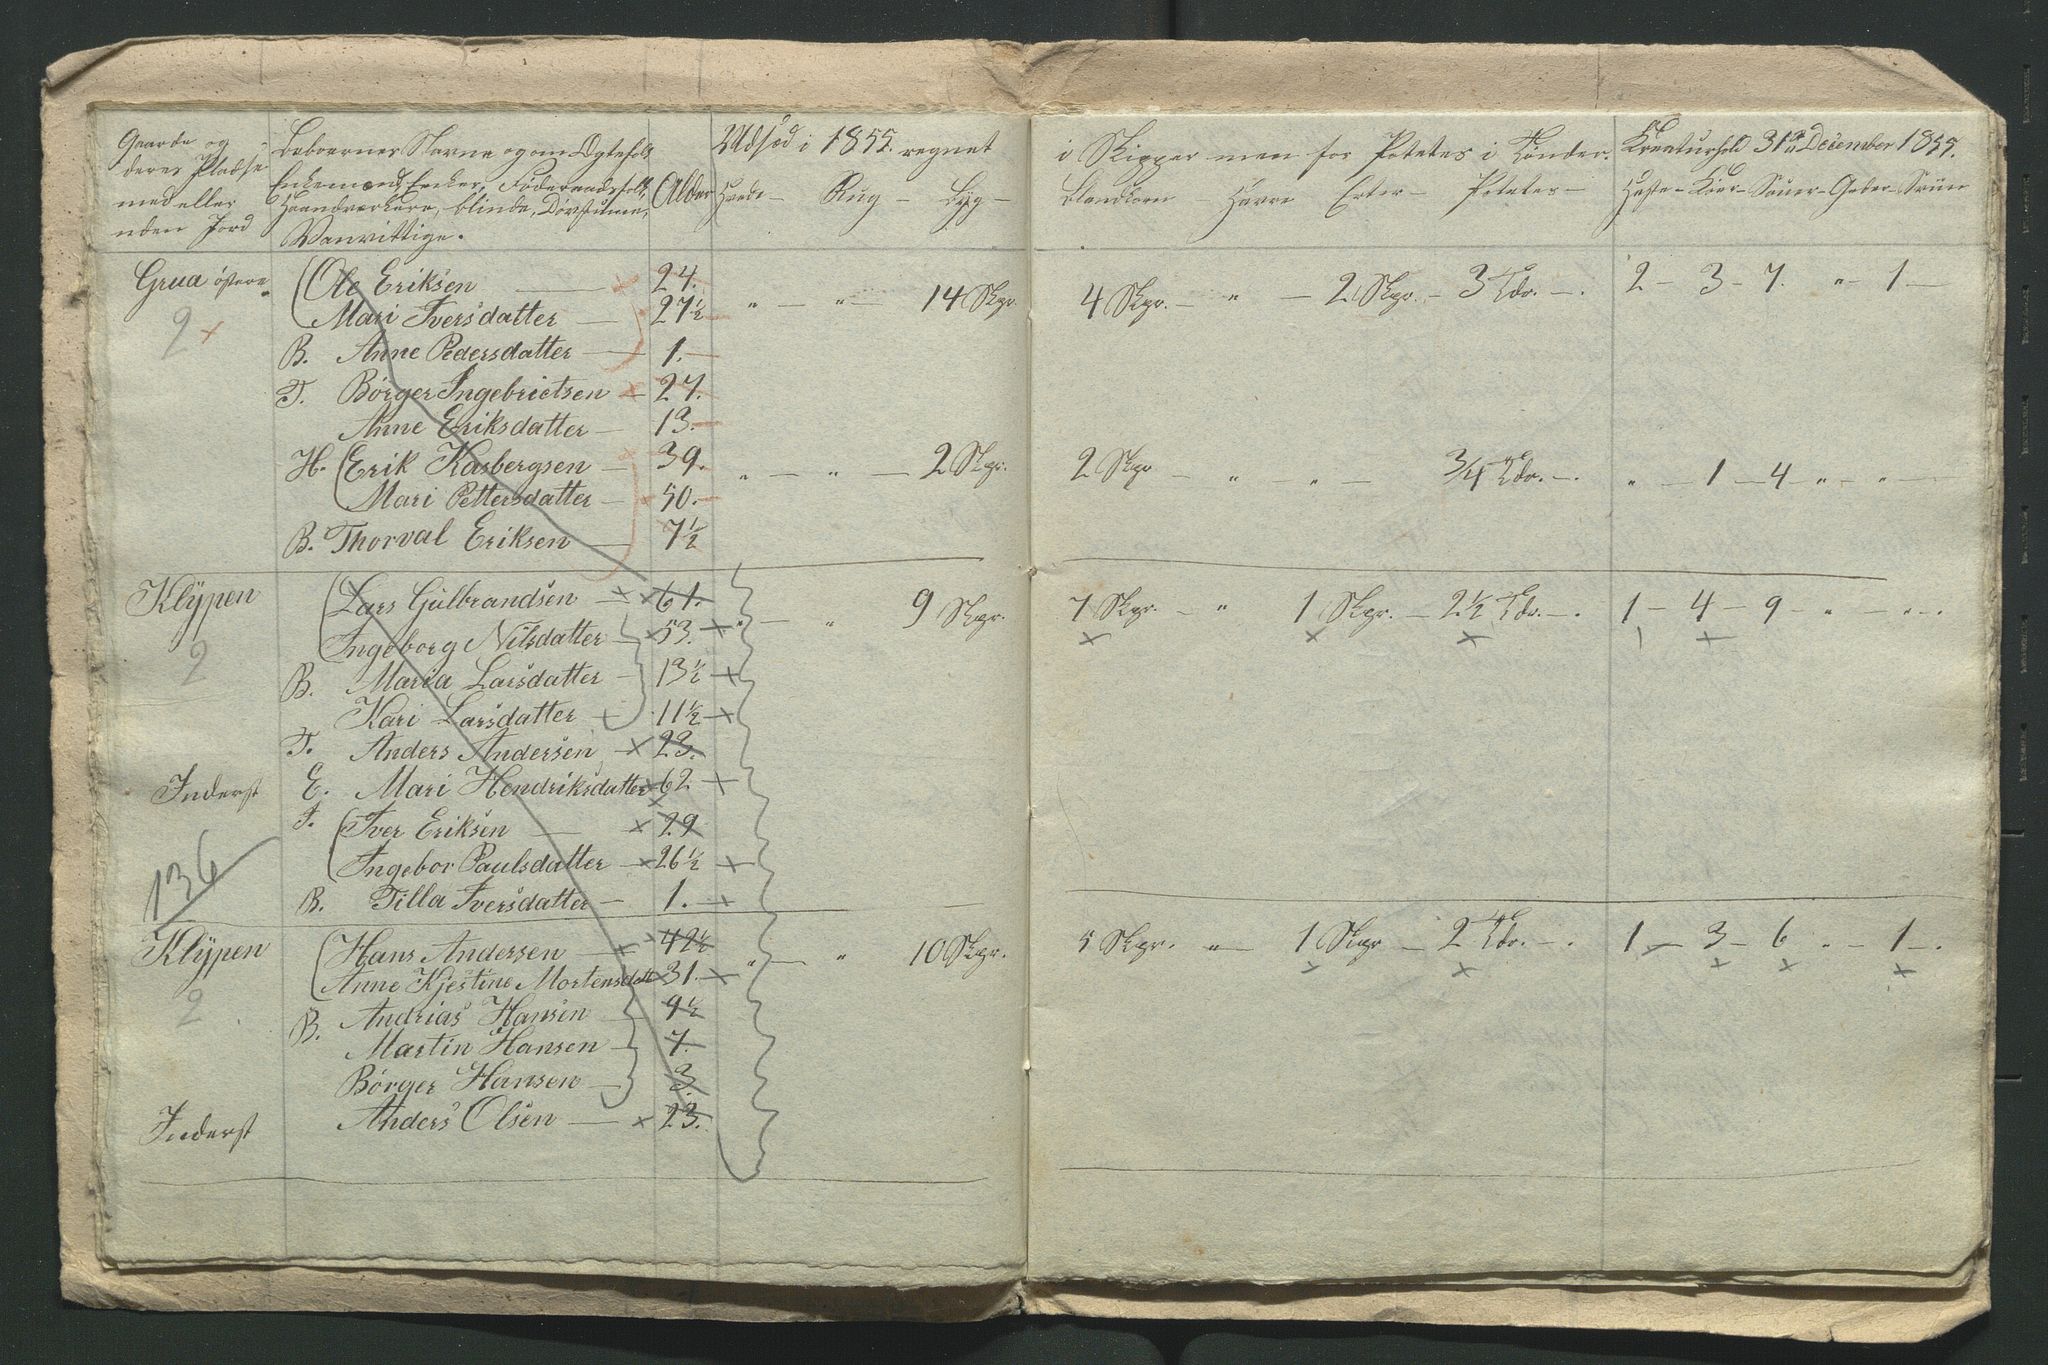 Gaarde og
deres Pladse
med eller
uden Jord
Beboernes Navne og om Ægtefolk
Enkemænd, Enker, Føderaadsfolk,
Haandværkere, blinde, Døvstumme,
Vanvittige.
Alder
Udsæd i 1855. regnet
Hvede - Rug - Byg -
i Skipper men for Potetes i Tønder.
Blandkorn - Havre Erter - Potetes -
Kreaturhold 31te December 1855.
Heste - Kiør - Souer - Geder - Sviin
Grua østere ( Ole Eriksen — 24. " — " — 14 Skpr. 4 Skpr. — " — 2 Skpr. — 3 Tdr. — . 2 — 3 — 7. " — 1 —
2 Mari Iversdatter — 27½
B. Anne Pedersdatter — 1. —
T. Børger Ingebrietsen — 27.
Anne Eriksdatter — 13. —
H. ( Erik Karbergsen — 39. " — " — 2 Skpr. 2 Skpr — " " — 3/4 Tdr. — . " — 1 — 4 " — " —
Mari Pettersdatter — 50. —
B. Thorval Eriksen — 7½
Klÿpen ( Lars Gulbrandsen — 61. " — " 9 Skpr. 7 Skpr. — " 1 Skpr. — 2½ Tdr. — . 1 — 4 — 9 — " — " — .
2 Ingeborg Nilsdatter — 53.
B. Maria Larsdatter — 13½
Kari Larsdatter — 11½
T. Anders Andersen — 23.
Inderst E. Mari Hendriksdatter 62
I. ( Iver Eriksen — 29
Ingebor Paulsdatter — 26½
136
B. Tilla Iversdatter — 1. —
Klÿpen ( Hans Andersen — 42½ " — " 10 Skpr. 5 Skpr. " — 1 Skpr — 2 Tdr. — . 1 — 3 — 6 " — 1 — .
2 Anne Kjestine Mortensdatt 31. —
B. Andrias Hansin — 9½
Martin Hansen — 7.
Børger Hansen — 3
Inderst Anders Olsen — 23.